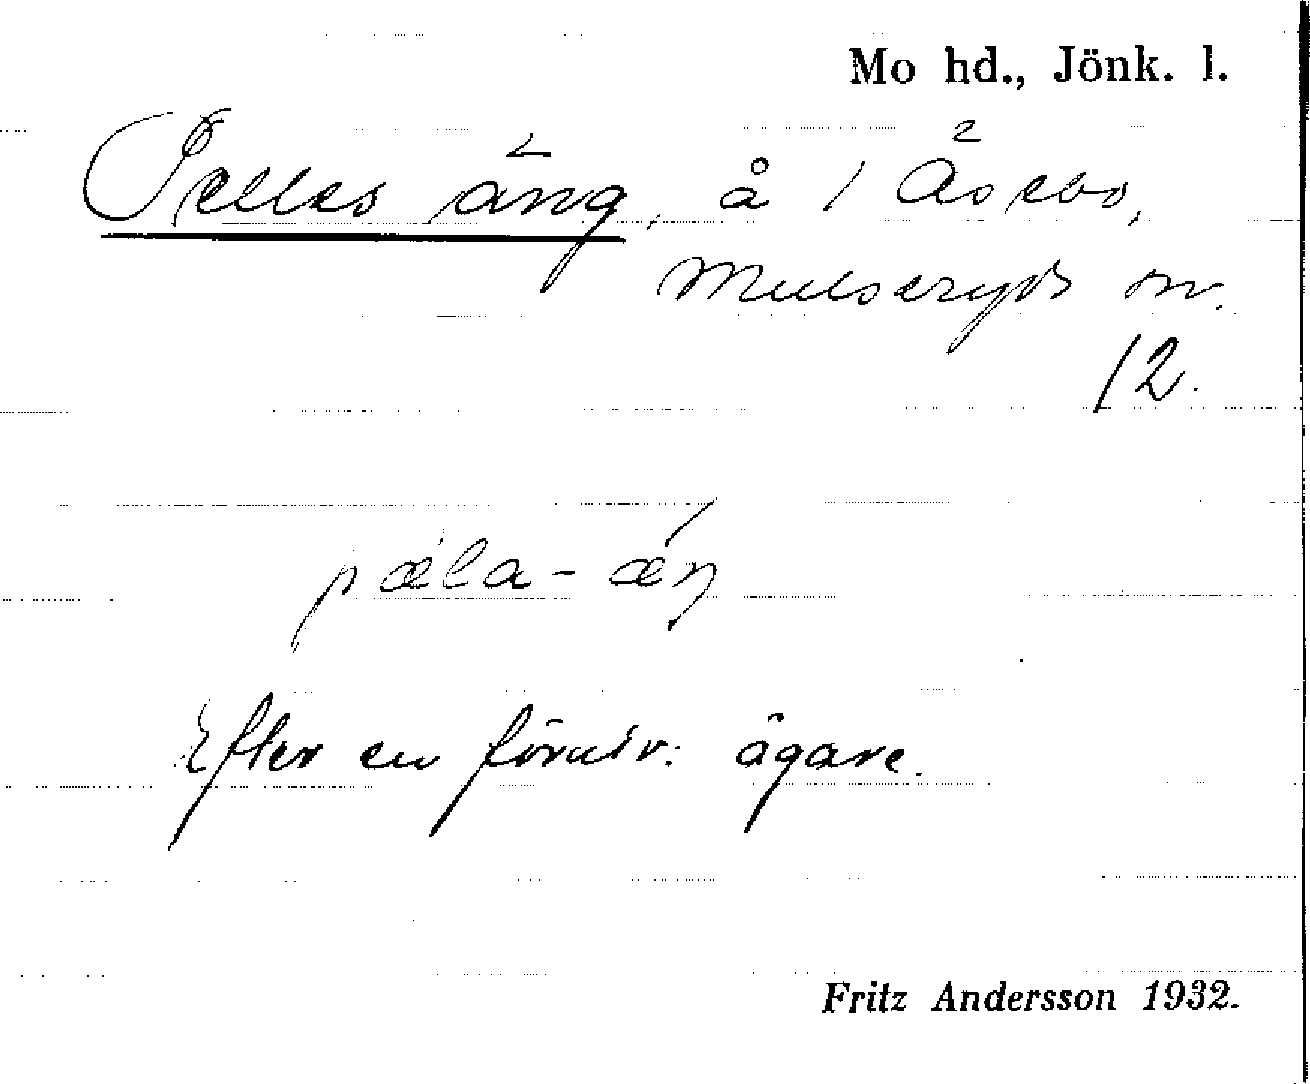 Mo hd., Jönk. l.
Pelles äng, å 1 Åsebo,
Mulseryds sn.
12.
pæla-æŋ
Efter en förutv. ägare.
Fritz Andersson 1932.